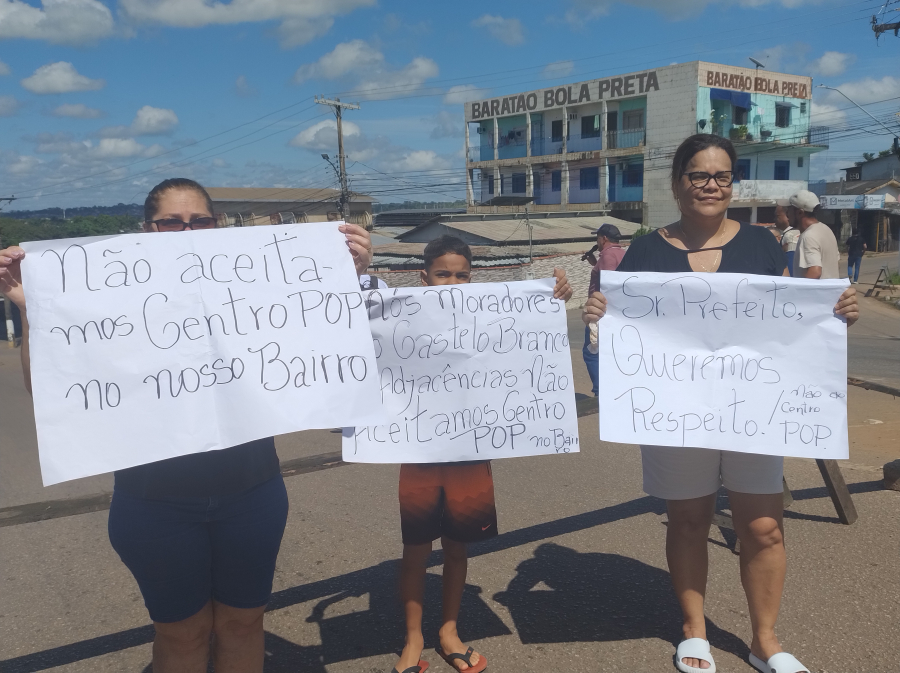 BARATÃO BOLA PRETA
BARATÃO BOLA PRETA
Não aceita-
mos Centro POP
no nosso Bairro
Nós Moradores
Castelo Branco
Adjacências Não
Aceitamos Centro
POP no Bair
ro
Sr. Prefeito,
Queremos
Respeito!
Não ao
Centro
POP.